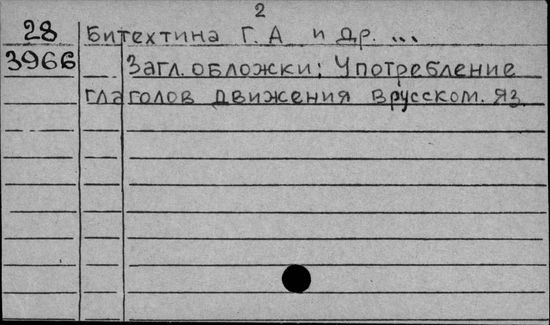 2
28 Битехтина Г. А и др. ...
3966 Загл. обложки: Употребление
глаголов движения в русском. яз.